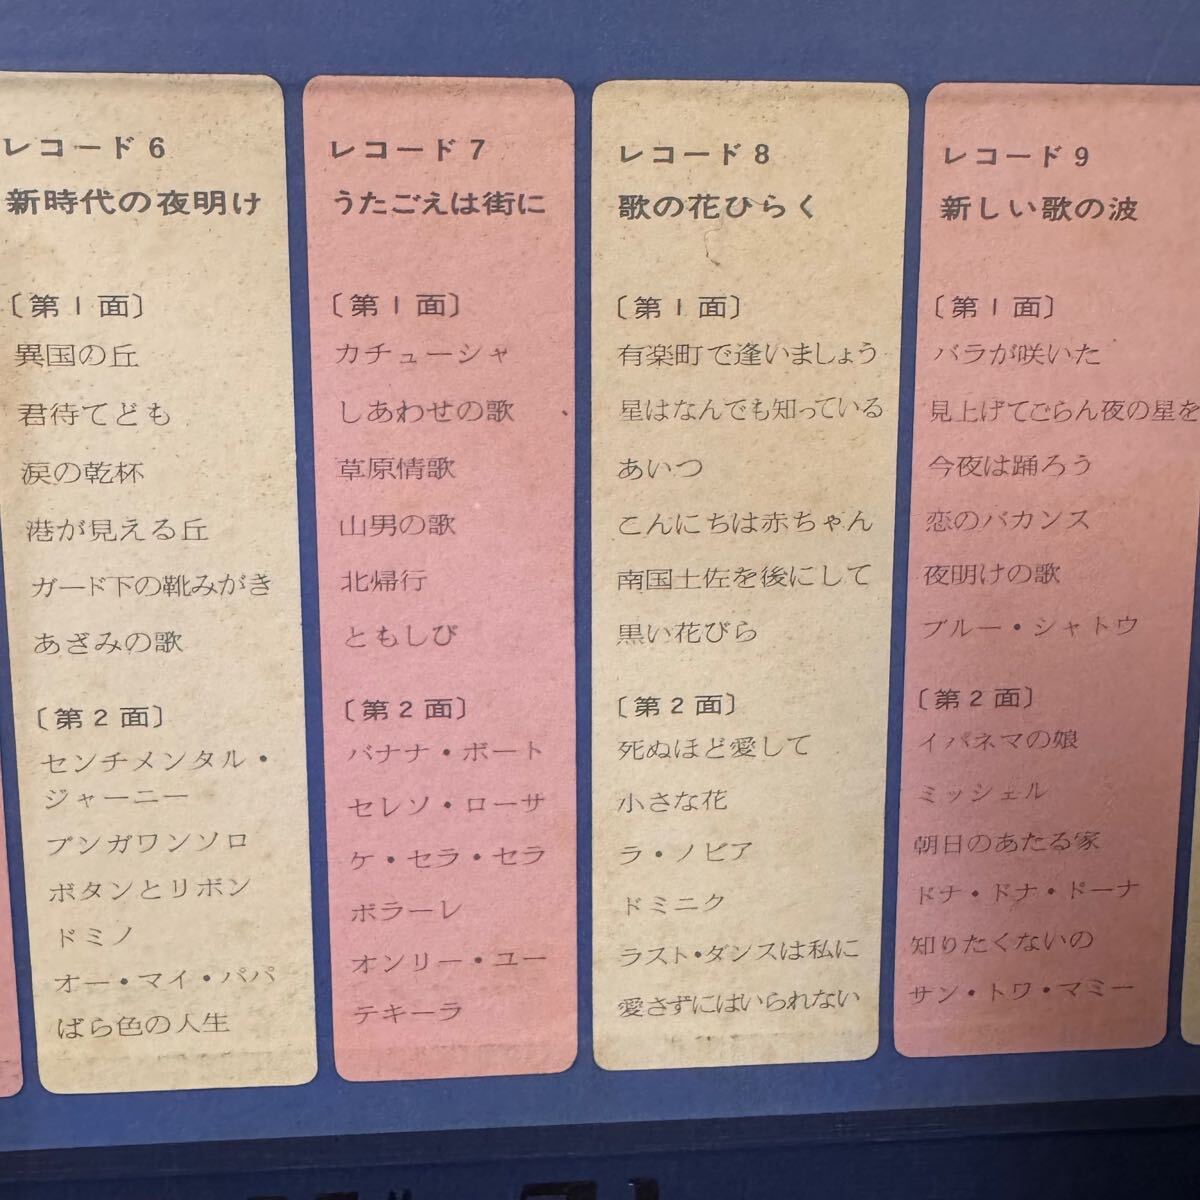 レコード6
新時代の夜明け
〔第1面〕
異国の丘
君待てども
涙の乾杯
港が見える丘
ガード下の靴みがき
あざみの歌
〔第2面〕
センチメンタル・
ジャーニー
ブンガワンソロ
ボタンとリボン
ドミノ
オー・マイ・パパ
ばら色の人生
レコード7
うたごえは街に
〔第1面〕
カチューシャ
しあわせの歌
草原情歌
山男の歌
北帰行
ともしび
〔第2面〕
バナナ・ボート
セレソ・ローサ
ケ・セラ・セラ
ボラーレ
オンリー・ユー
テキーラ
レコード8
歌の花ひらく
〔第1面〕
有楽町で逢いましょう
星はなんでも知っている
あいつ
こんにちは赤ちゃん
南国土佐を後にして
黒い花びら
〔第2面〕
死ぬほど愛して
小さな花
ラ・ノビア
ドミニク
ラスト・ダンスは私に
愛さずにはいられない
レコード9
新しい歌の波
〔第1面〕
バラが咲いた
見上げてごらん夜の星を
今夜は踊ろう
恋のバカンス
夜明けの歌
ブルー・シャトウ
〔第2面〕
イパネマの娘
ミッシェル
朝日のあたる家
ドナ・ドナ・ドーナ
知りたくないの
サン・トワ・マミー